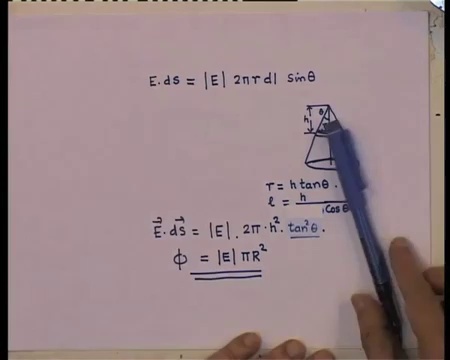 E.ds = |E| 2πr dl sinθ
θ
h
r
r = h tanθ.
l = h / Cosθ
E⃗.ds⃗ = |E|. 2π·h². tan²θ.
ϕ = |E| πR²